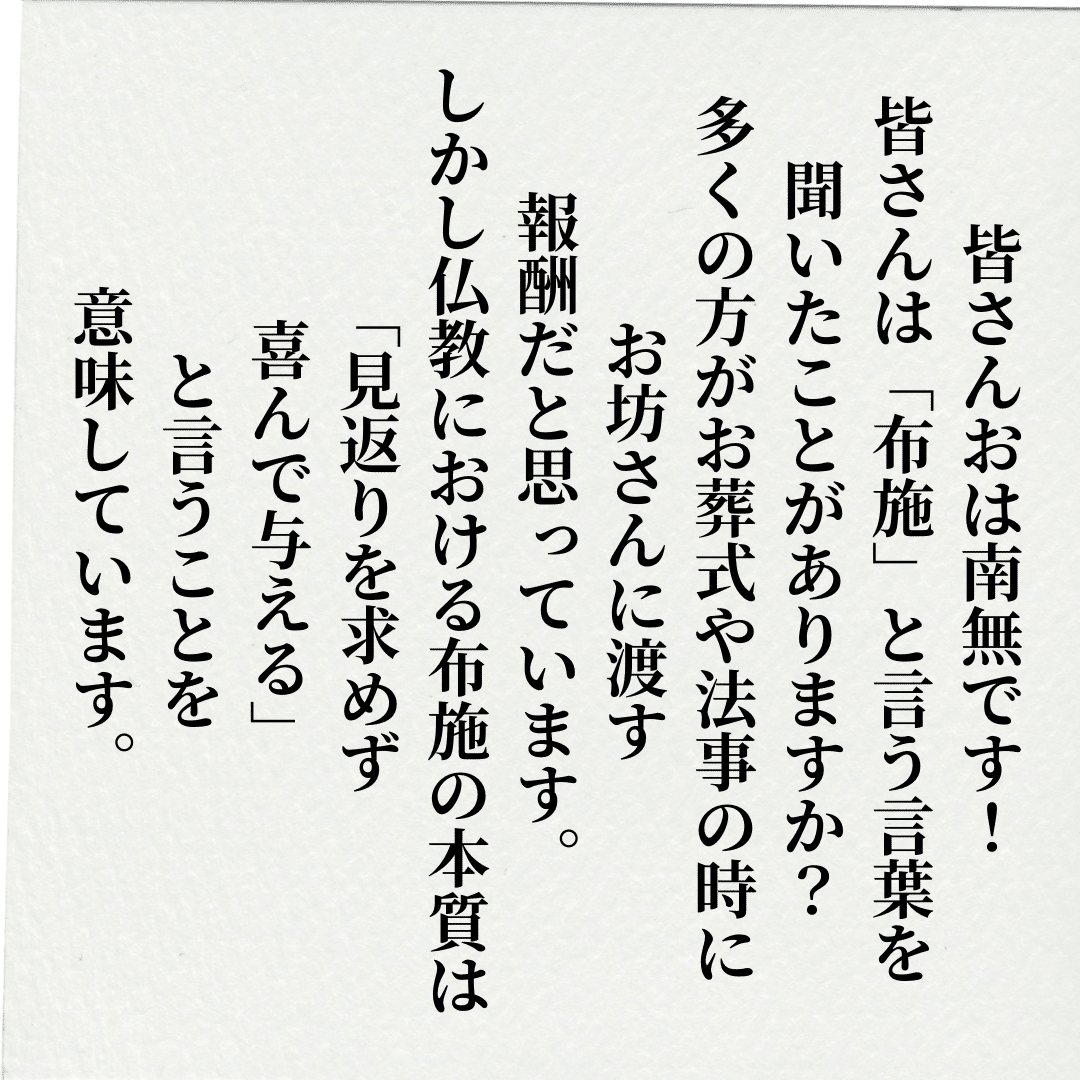 皆さんおは南無です！
皆さんは「布施」と言う言葉を
聞いたことがありますか？
多くの方がお葬式や法事の時に
お坊さんに渡す
報酬だと思っています。
しかし仏教における布施の本質は
「見返りを求めず
喜んで与える」
と言うことを
意味しています。